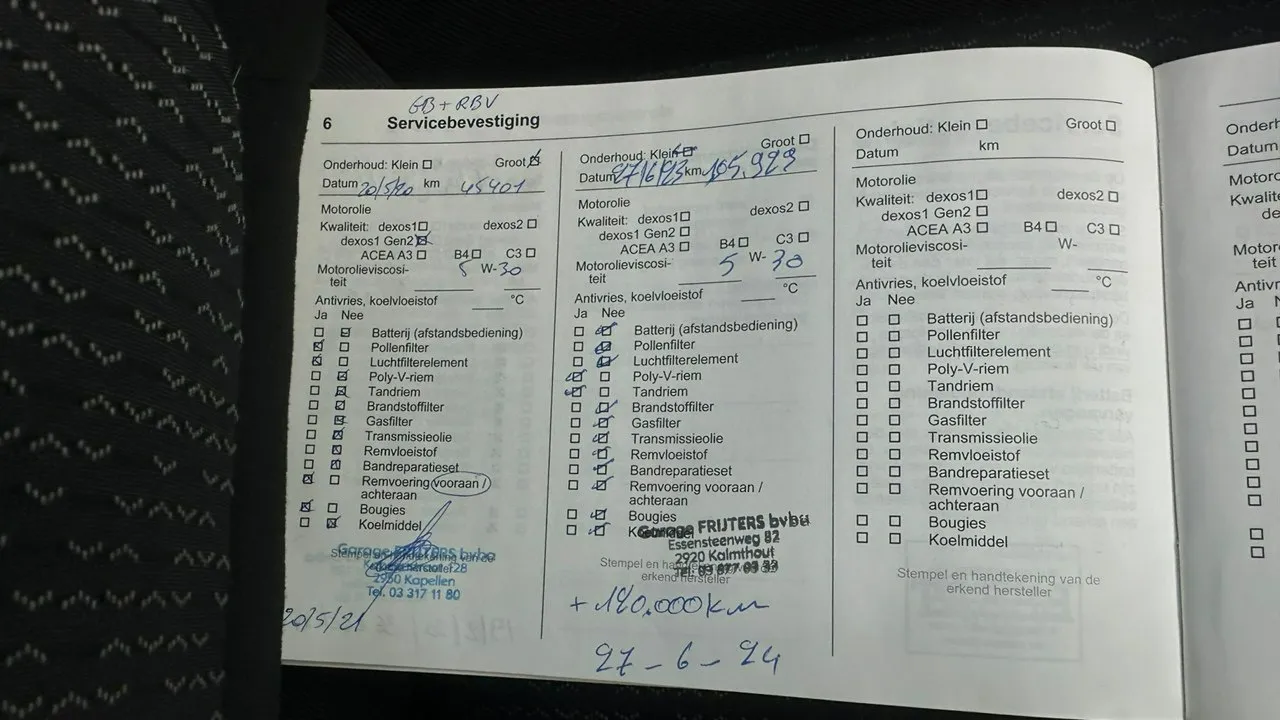 GB + RBV
6 Servicebevestiging
Onderhoud: Klein Groot
Datum 20/5/20 km 45401
Motorolie
Kwaliteit: dexos1 dexos2
dexos1 Gen2
ACEA A3 B4 C3
Motorolieviscosi-
teit 5 W-30
Antivries, koelvloeistof °C
Ja Nee
Batterij (afstandsbediening)
Pollenfilter
Luchtfilterelement
Poly-V-riem
Tandriem
Brandstoffilter
Gasfilter
Transmissieolie
Remvloeistof
Bandreparatieset
Remvoering vooraan /
achteraan
Bougies
Koelmiddel
Garage FRIJTERS bvba
Stempel en handtekening van de
2950 Kapellen
Tel. 03 317 11 80
20/5/21
Onderhoud: Klein Groot
Datum 27/6/23 km 105.923
Motorolie
Kwaliteit: dexos1 dexos2
dexos1 Gen2
ACEA A3 B4 C3
Motorolieviscosi-
teit 5 W-30
Antivries, koelvloeistof °C
Ja Nee
Batterij (afstandsbediening)
Pollenfilter
Luchtfilterelement
Poly-V-riem
Tandriem
Brandstoffilter
Gasfilter
Transmissieolie
Remvloeistof
Bandreparatieset
Remvoering vooraan /
achteraan
Bougies
Koelmiddel
Garage FRIJTERS bvba
Essensteenweg 82
2920 Kalmthout
Tel. 03 877 03 33
Stempel en handtekening
erkend hersteller
+ 120.000 km
27-6-24
Onderhoud: Klein Groot
Datum km
Motorolie
Kwaliteit: dexos1 dexos2
dexos1 Gen2
ACEA A3 B4 C3
Motorolieviscosi- W-
teit
Antivries, koelvloeistof °C
Ja Nee
Batterij (afstandsbediening)
Pollenfilter
Luchtfilterelement
Poly-V-riem
Tandriem
Brandstoffilter
Gasfilter
Transmissieolie
Remvloeistof
Bandreparatieset
Remvoering vooraan /
achteraan
Bougies
Koelmiddel
Stempel en handtekening van de
erkend hersteller
Onderh
Datum
Motoro
Kwalite
Motoro
teit
Antivr
Ja